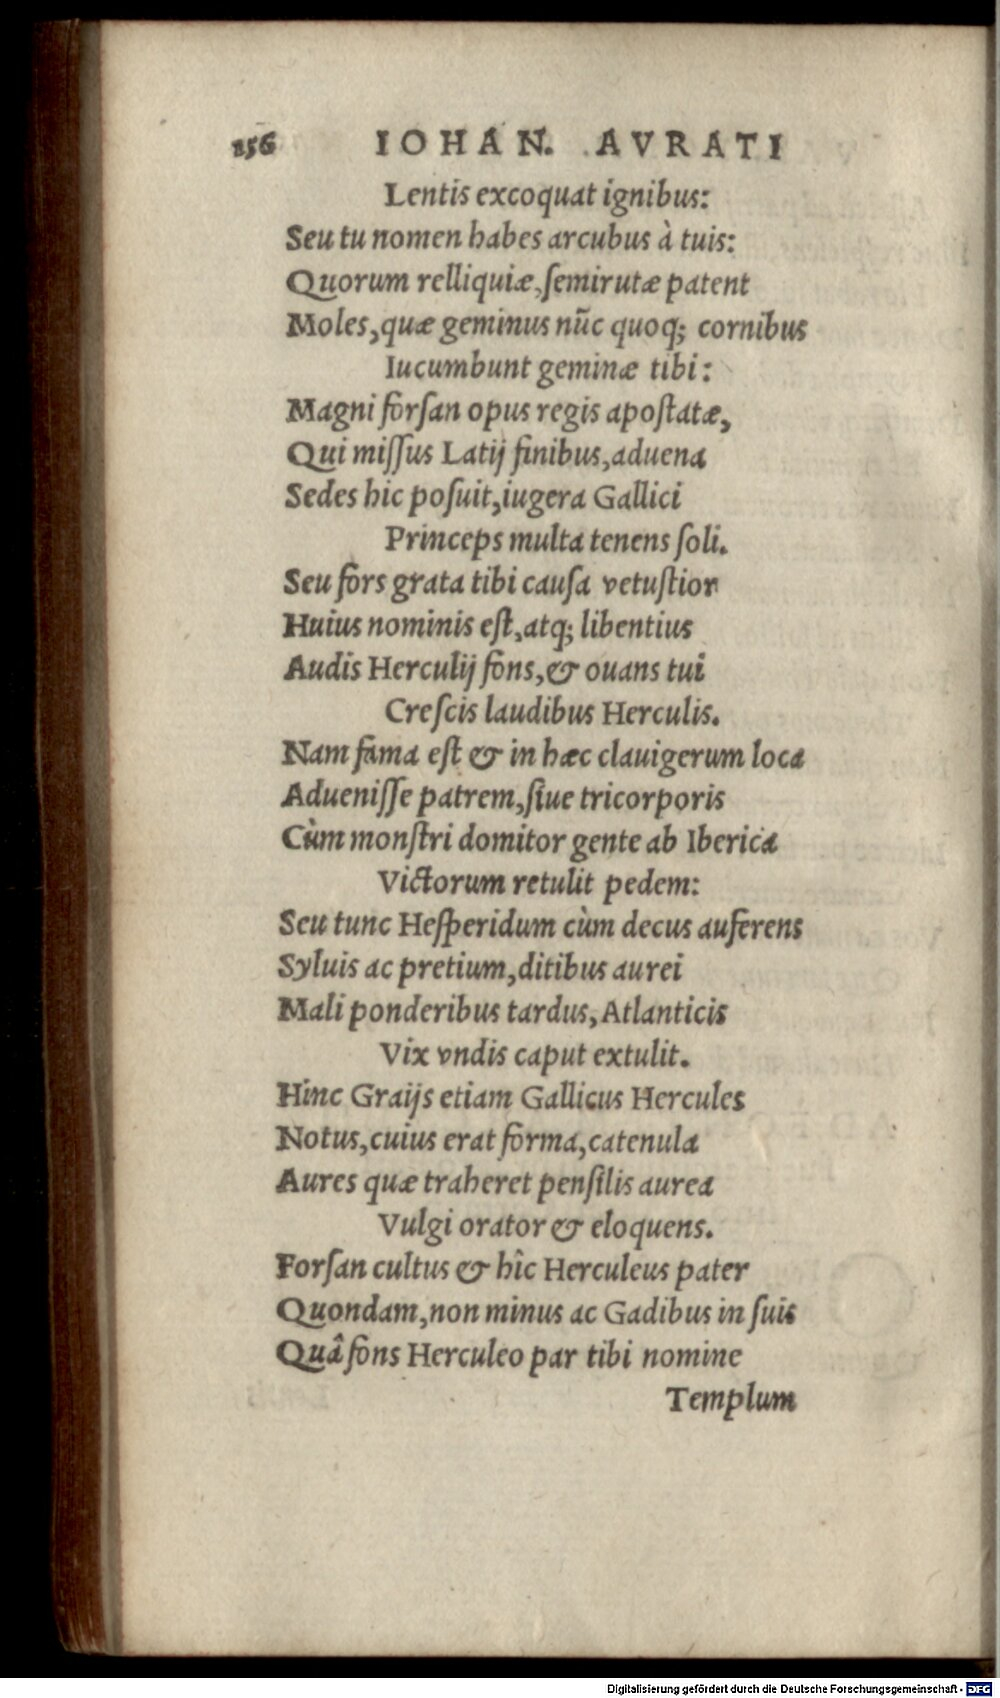 156 IOHAN. AVRATI
Lentis excoquat ignibus:
Seu tu nomen habes arcubus à tuis:
Quorum relliquiæ, ſemirutæ patent
Moles, quæ geminus nũc quoq; cornibus
Iucumbunt geminæ tibi:
Magni forſan opus regis apoſtatæ,
Qui miſſus Latij finibus, aduena
Sedes hic poſuit, iugera Gallici
Princeps multa tenens ſoli.
Seu fors grata tibi cauſa vetuſtior
Huius nominis eſt, atq; libentius
Audis Herculij fons, & ouans tui
Creſcis laudibus Herculis.
Nam fama eſt & in hæc clauigerum loca
Adueniſſe patrem, ſiue tricorporis
Cùm monſtri domitor gente ab Iberica
Victorum retulit pedem:
Seu tunc Heſperidum cùm decus auferens
Syluis ac pretium, ditibus aurei
Mali ponderibus tardus, Atlanticis
Vix vndis caput extulit.
Hinc Graijs etiam Gallicus Hercules
Notus, cuius erat forma, catenula
Aures quæ traheret penſilis aurea
Vulgi orator & eloquens.
Forſan cultus & hîc Herculeus pater
Quondam, non minus ac Gadibus in ſuis
Quâ fons Herculeo par tibi nomine
Templum
Digitalisierung gefördert durch die Deutsche Forschungsgemeinschaft - DFG